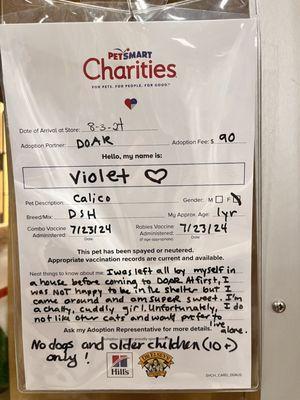 PETSMART
Charities
FOR PETS. FOR PEOPLE. FOR GOOD.
Date of Arrival at Store: 8-3-24
Adoption Partner: DOAR Adoption Fee: $ 90
Hello, my name is:
Violet ♡
Pet Description: Calico Gender: M F
Breed/Mix: DSH My Approx. Age: 1yr
Combo Vaccine Administered: 7/23/24 Rabies Vaccine Administered: 7/23/24
Date (if age appropriate) Date
This pet has been spayed or neutered.
Appropriate vaccination records are current and available.
Neat things to know about me: I was left all by myself in
a house before coming to DOAR. At first, I
was NOT happy to be in the shelter but I
came around and am super sweet. I'm
a chatty, cuddly girl. Unfortunately, I do
not like other cats and would prefer to
live alone.
Ask my Adoption Representative for more details.
No dogs and older children (10+)
only!
Hill's